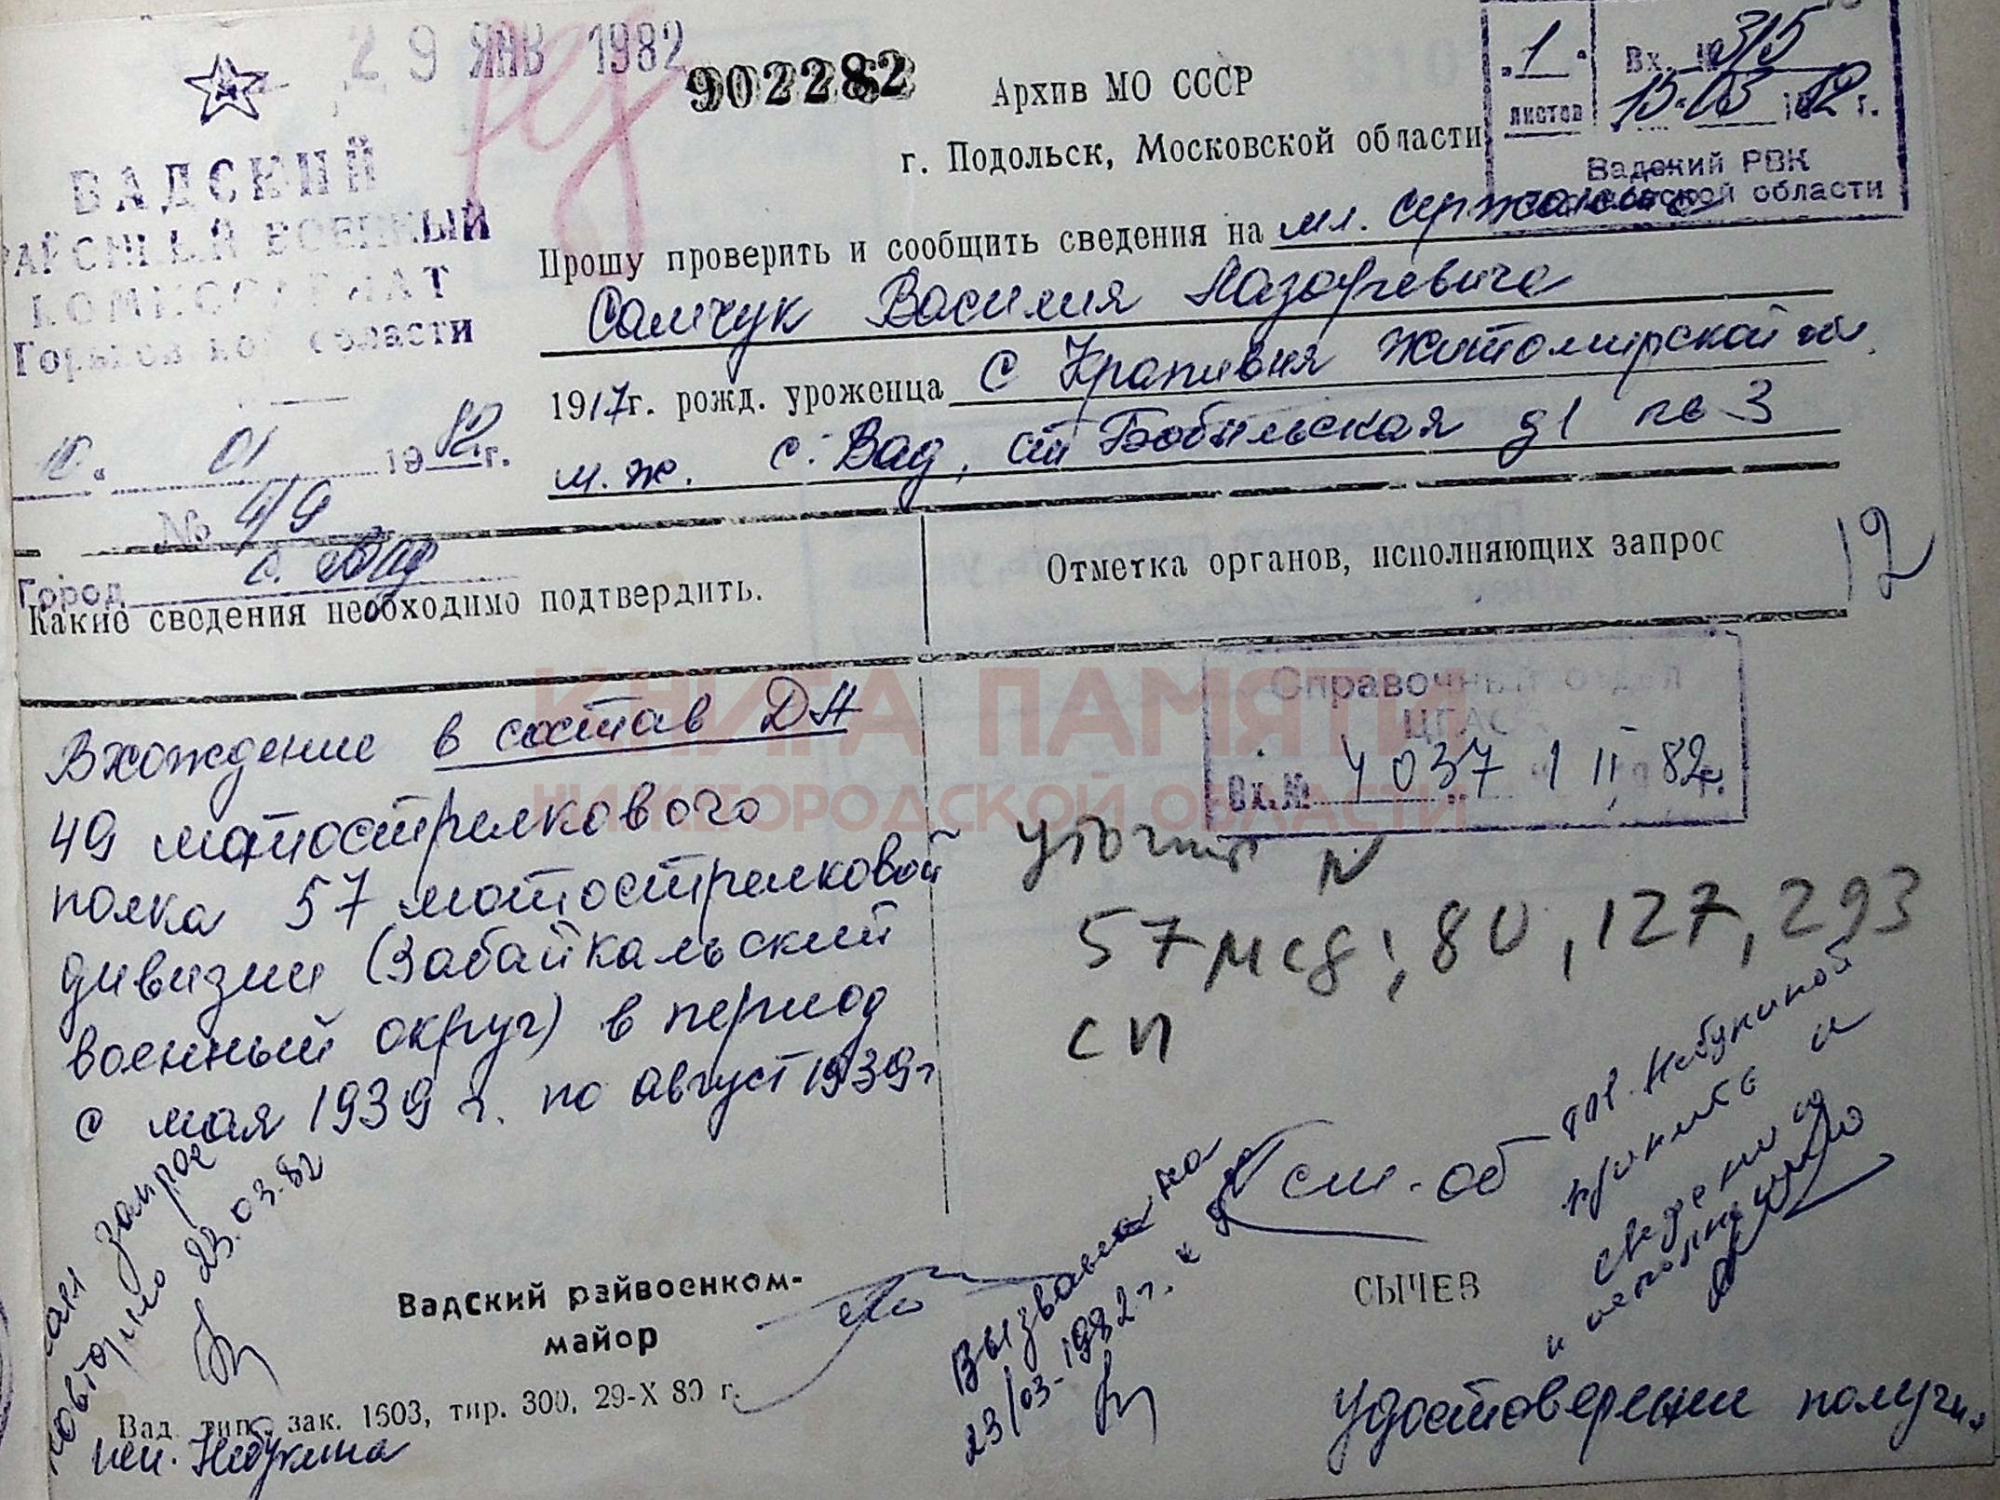 29 ЯНВ 1982
902282
Архив МО СССР
г. Подольск, Московской области
1
листов
Вх. № 315
15.03 1982 г.
Вадский РВК
области
ВАДСКИЙ
РАЙОННЫЙ ВОЕННЫЙ
КОМИССАРИАТ
Горьковской области
01 1982 г.
№ 4/9
Город с. Вад
Прошу проверить и сообщить сведения на мл. сержанта
Самчук Василия Лазаревича
1917г. рожд. уроженца с Крапивня Житомирской обл.
м.ж. с. Вад, ул Бобыльская д1 кв 3
12
Какие сведения необходимо подтвердить.
Отметка органов, исполняющих запрос
КНИГА ПАМЯТИ
НИЖЕГОРОДСКОЙ ОБЛАСТИ
Справочный отдел
ЦГАС
Вх.№ 4037 1 II 82г.
Вхождение в состав ДА
49 мотострелкового
полка 57 мотострелковой
дивизии (Забайкальский
военный округ) в период
с мая 1939 г. по август 1939г
57 мсд; 80, 127, 293
сп
запрос
повторно 23.03.82
Вызван на
23/03-1982г. к
см. об
тов. Небукиной
принять
сведению
и
Вадский райвоенком-
майор
СЫЧЕВ
Вад. тип., зак. 1503, тир. 300, 29-X 80 г.
исп. Небукина
удостоверение получ.